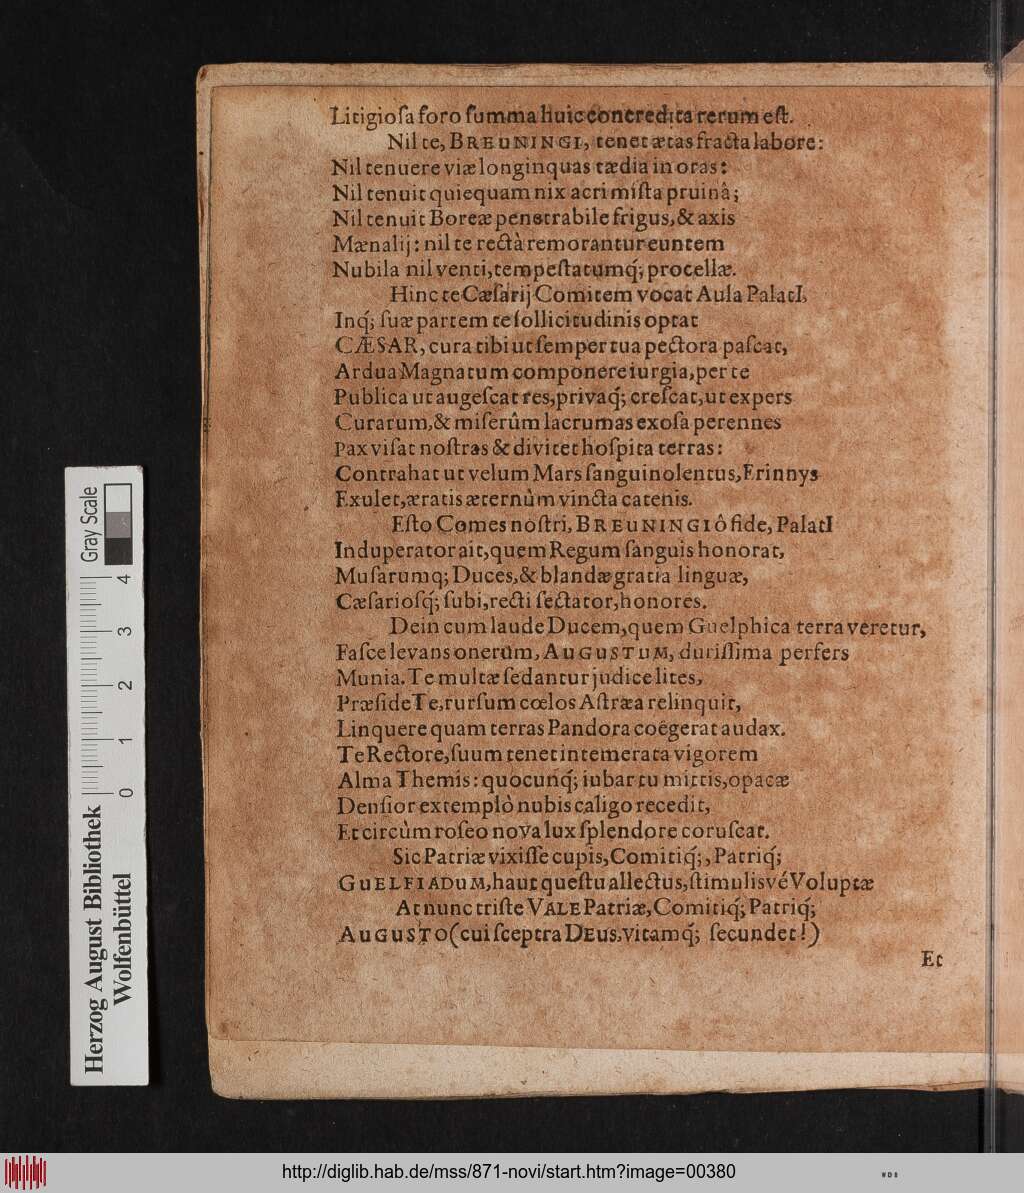 Litigioſa foro ſumma huic concredita rerum eſt.
Nil te, BREUNINGI, tenet ætas fracta labore:
Nil tenuere viæ longinquas tædia in oras:
Nil tenuit quicquam nix acri miſta pruinâ;
Nil tenuit Boreæ penetrabile frigus, & axis
Mænalij: nil te rectà remorantur euntem
Nubila nil venti, tempeſtatumq́; procellæ.
Hinc te Cæſarij Comitem vocat Aula PalatI,
Inq́; ſuæ partem te ſollicitudinis optat
CÆSAR, cura tibi ut ſemper tua pectora paſcat,
Ardua Magnatum componere iurgia, per te
Publica ut augeſcat res, privaq́; creſcat, ut expers
Curarum, & miſerûm lacrumas exoſa perennes
Pax viſat noſtras & divitet hoſpita terras:
Contrahat ut velum Mars ſanguinolentus, Erinnys
Exulet, æratis æternùm vincta catenis.
Eſto Comes noſtri, BREUNINGI ô fide, PalatI
Induperator ait, quem Regum ſanguis honorat,
Muſarumq; Duces, & blandæ gratia linguæ,
Cæſarioſq́; ſubi, recti ſectator, honores.
Dein cum laude Ducem, quem Guelphica terra veretur,
Faſce levans onerum, AUGUSTUM, duriſſima perfers
Munia. Te multæ ſedantur judice lites,
Præſide Te, rurſum cœlos Aſtræa relinquit,
Linquere quam terras Pandora coëgerat audax.
Te Rectore, ſuum tenet intemerata vigorem
Alma Themis: quocunq́; iubar tu mittis, opacæ
Denſior extemplò nubis caligo recedit,
Et circùm roſeo nova lux ſplendore coruſcat.
Sic Patriæ vixiſſe cupis, Comitiq́;, Patriq́;
GUELFIADUM, haut queſtu allectus, ſtimulisvé Voluptæ
At nunc triſte VALE Patriæ, Comitiq́; Patriq́;
AUGUSTO (cui ſceptra DEUS, vitamq́; ſecundet!)
Et
Gray Scale
4
3
2
1
0
Herzog August Bibliothek
Wolfenbüttel
http://diglib.hab.de/mss/871-novi/start.htm?image=00380